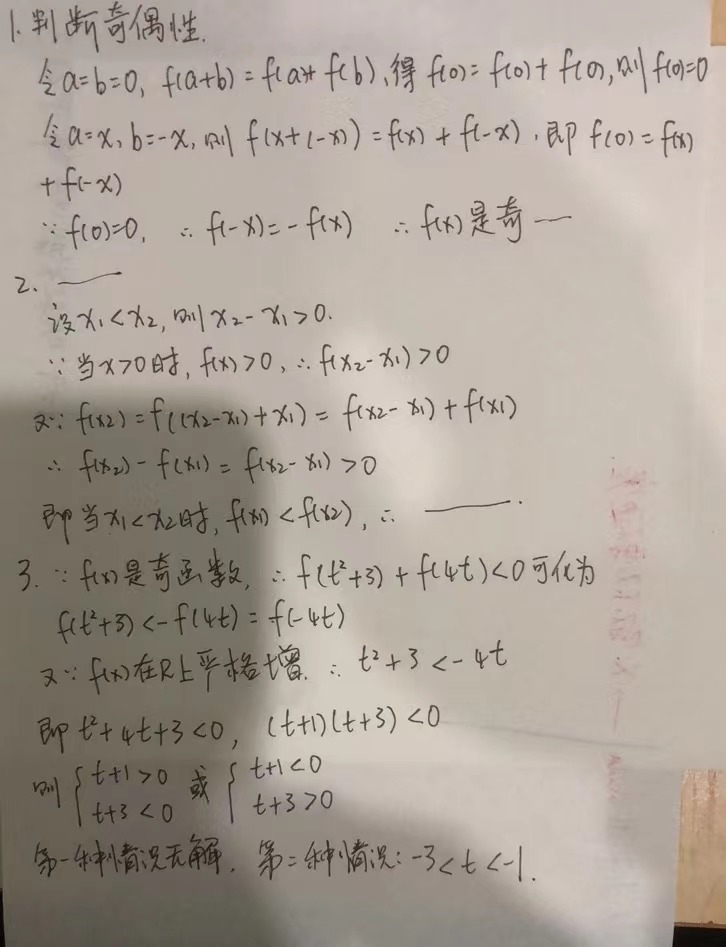 1. 判断奇偶性.
令a=b=0, f(a+b)=f(a)+f(b), 得 f(0)=f(0)+f(0), 则f(0)=0
令a=x, b=-x, 则 f(x+(-x))=f(x)+f(-x). 即 f(0)=f(x)
+f(-x)
∵f(0)=0, ∴ f(-x)=-f(x) ∴ f(x)是奇—
2. ——
设x₁<x₂, 则x₂-x₁>0.
∵当x>0时, f(x)>0, ∴f(x₂-x₁)>0
又∵ f(x₂)=f((x₂-x₁)+x₁)=f(x₂-x₁)+f(x₁)
∴ f(x₂)-f(x₁)=f(x₂-x₁)>0
即当x₁<x₂时, f(x₁)<f(x₂), ∴ ——.
3. ∵f(x)是奇函数, ∴f(t²+3)+f(4t)<0可化为
f(t²+3)<-f(4t)=f(-4t)
又∵f(x)在R上严格增. ∴ t²+3<-4t
即 t²+4t+3<0, (t+1)(t+3)<0
则 { t+1>0 或 { t+1<0
t+3<0 t+3>0
第一种情况无解. 第二种情况: -3<t<-1.